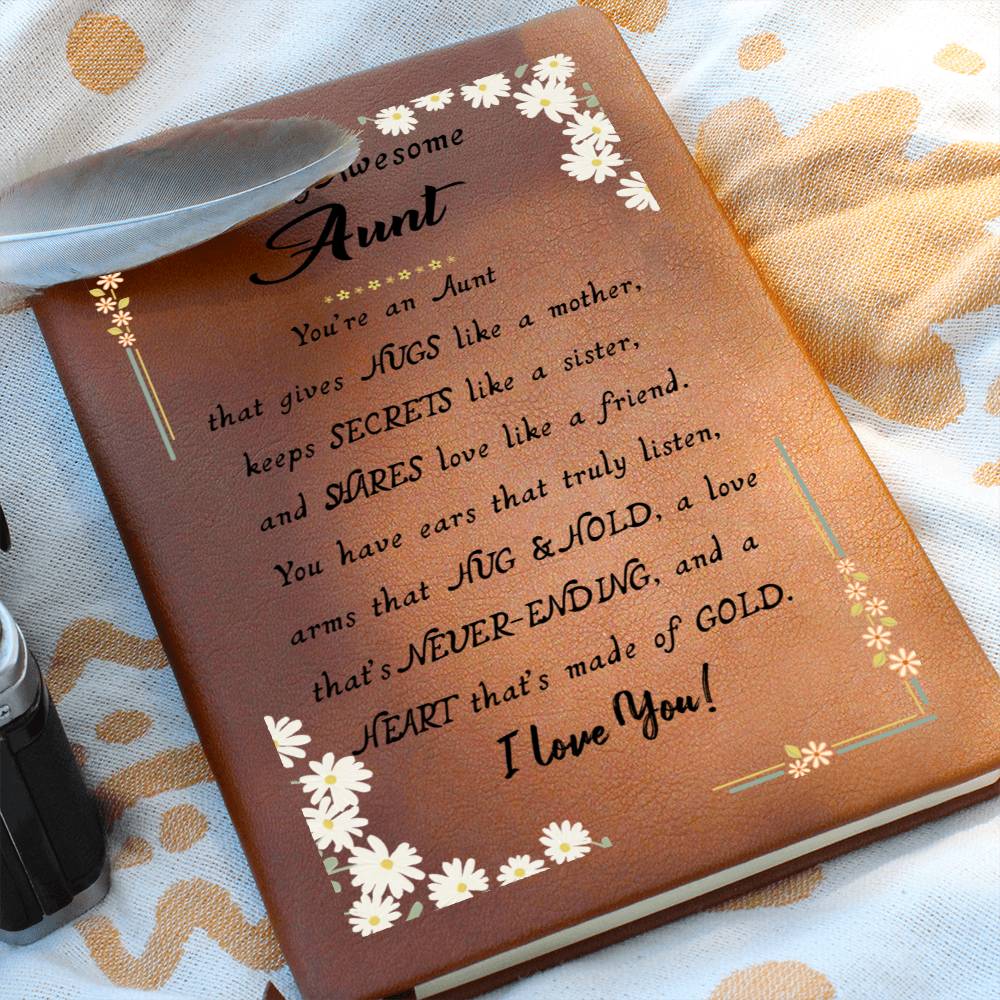 Awesome
Aunt
You're an Aunt
that gives HUGS like a mother,
keeps SECRETS like a sister,
and SHARES love like a friend.
You have ears that truly listen,
arms that HUG & HOLD, a love
that's NEVER-ENDING, and a
HEART that's made of GOLD.
I love You!